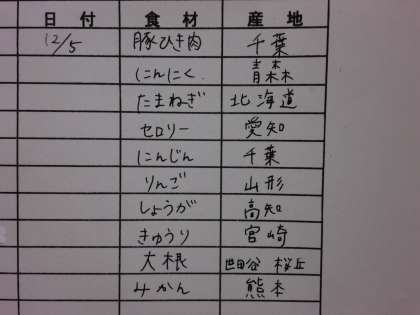 日付 食材 産地
12/5 豚ひき肉 千葉
にんにく 青森
たまねぎ 北海道
セロリー 愛知
にんじん 千葉
りんご 山形
しょうが 高知
きゅうり 宮崎
大根 世田谷 桜丘
みかん 熊本